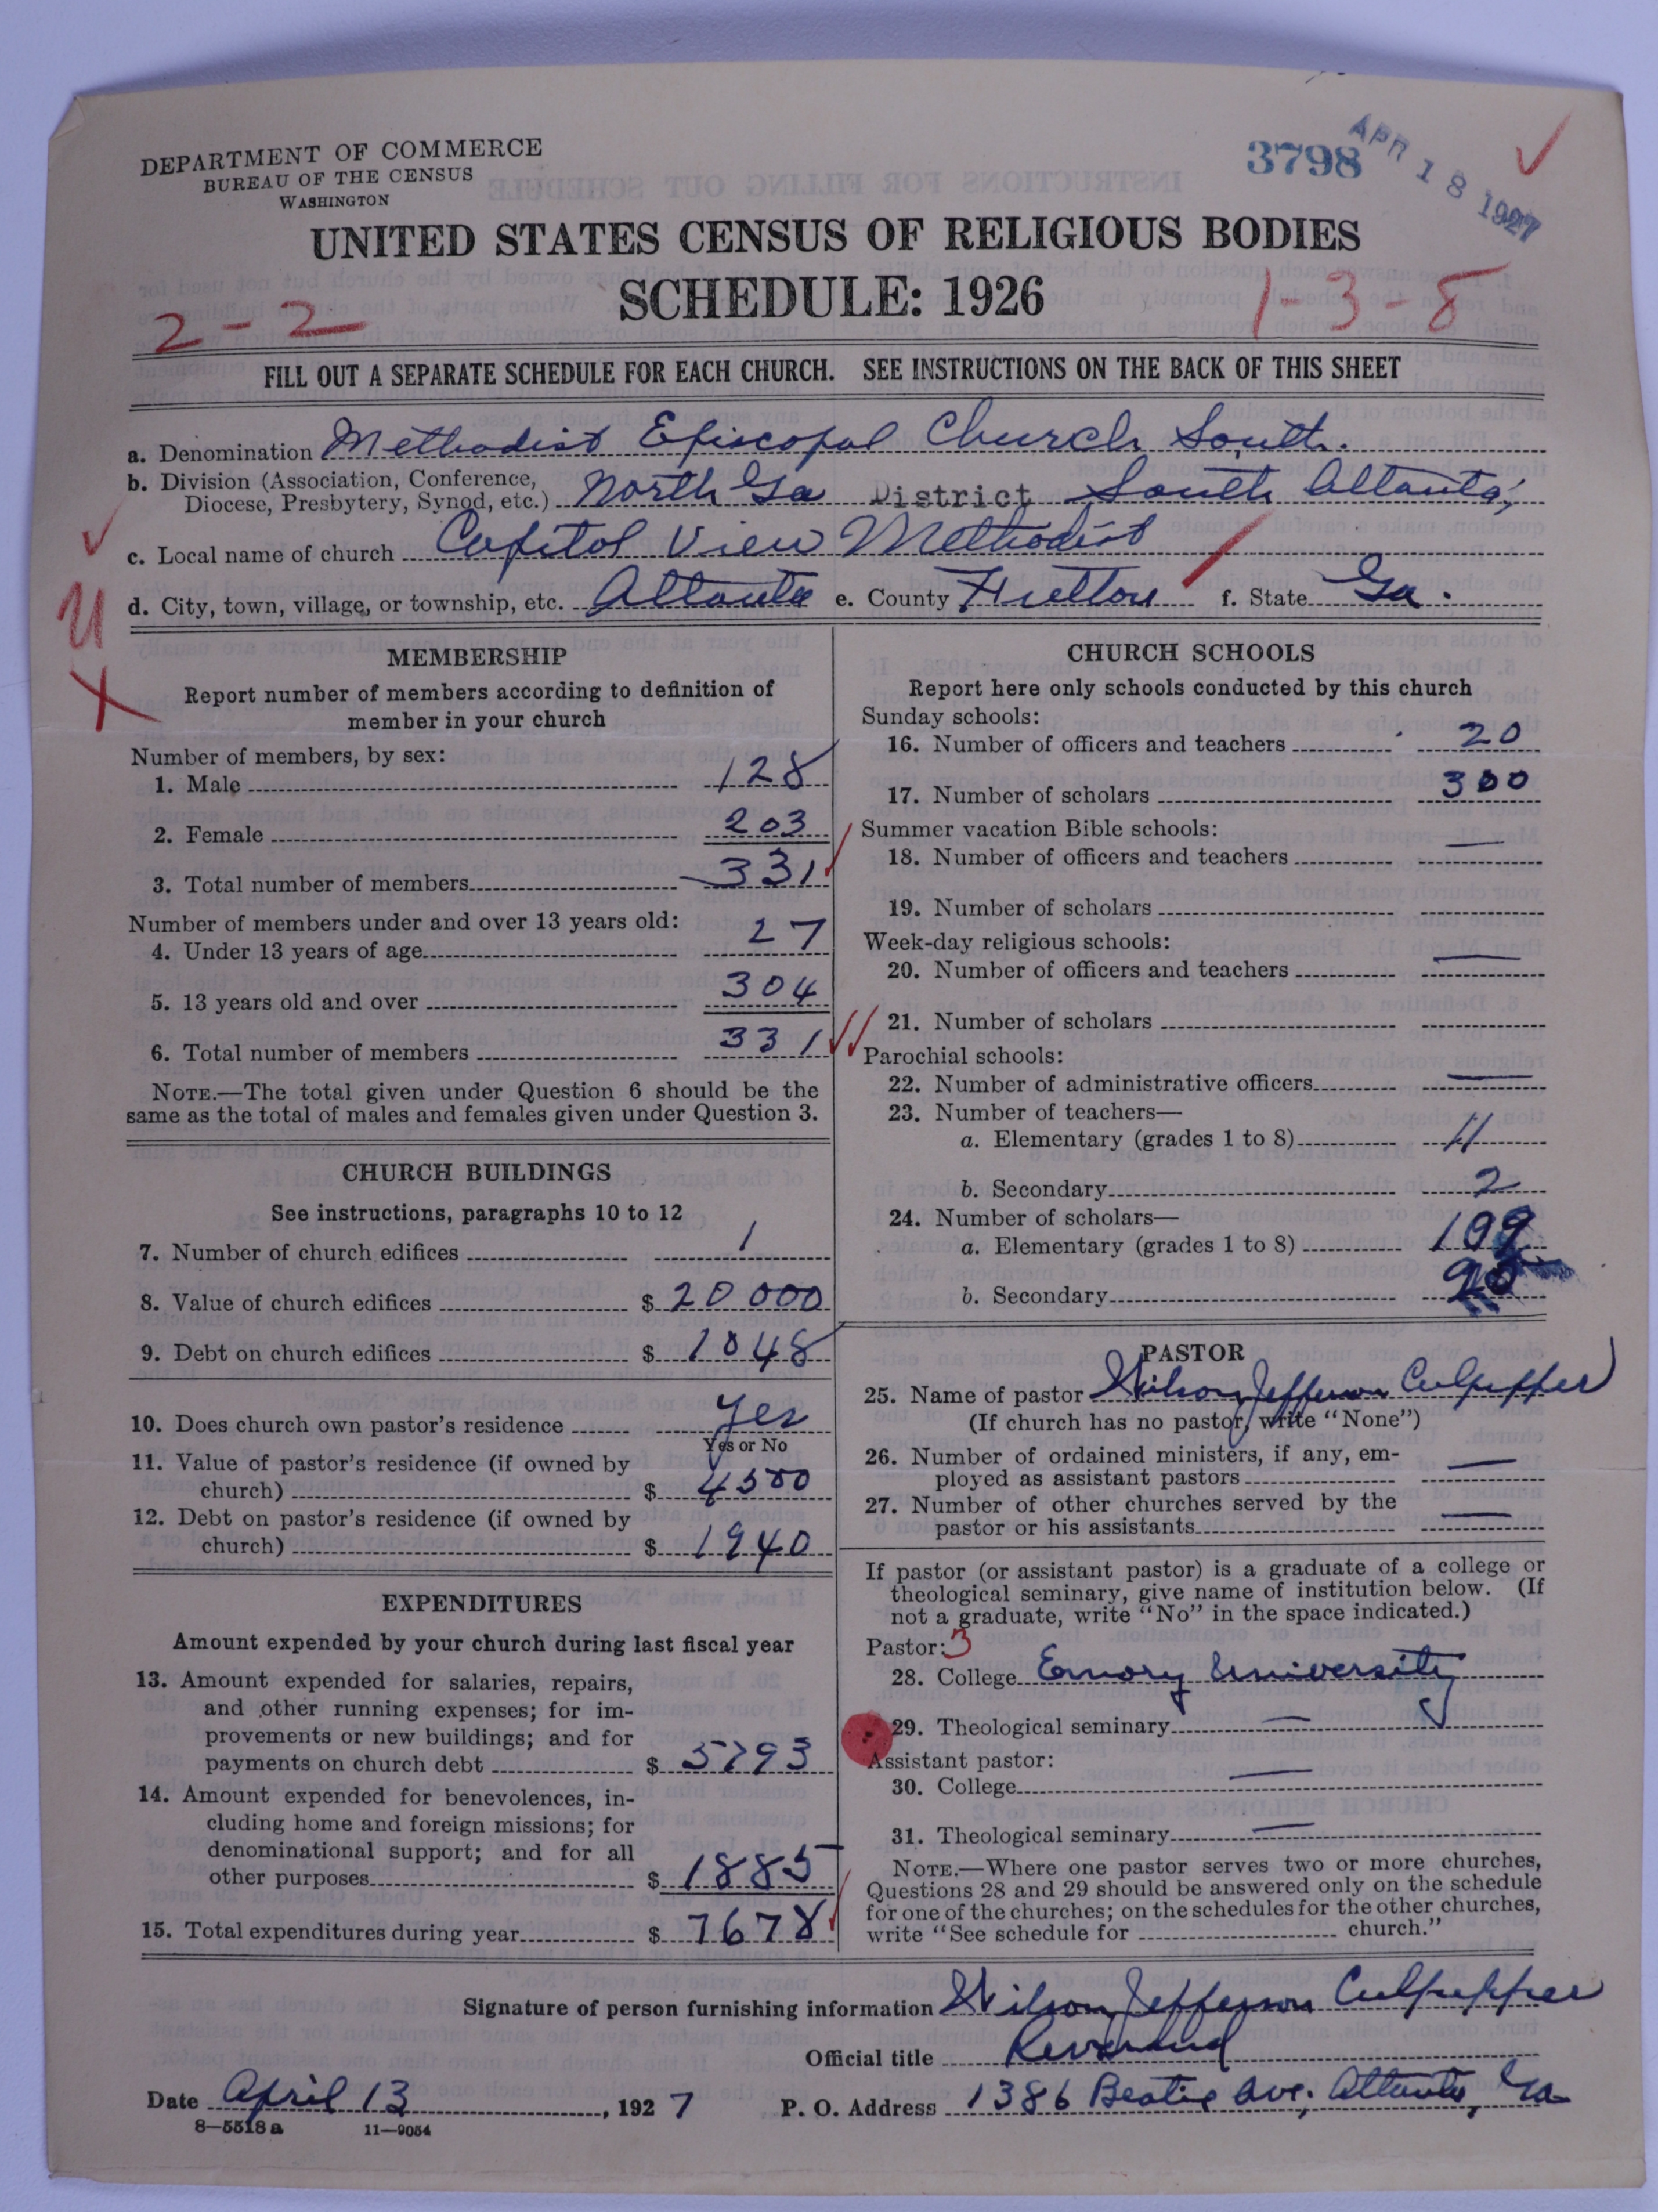 DEPARTMENT OF COMMERCE
BUREAU OF THE CENSUS
WASHINGTON
3798
APR 18 1927
UNITED STATES CENSUS OF RELIGIOUS BODIES
SCHEDULE: 1926
2-2
1-3-8
FILL OUT A SEPARATE SCHEDULE FOR EACH CHURCH. SEE INSTRUCTIONS ON THE BACK OF THIS SHEET
a. Denomination Methodist Episcopal Church, South.
b. Division (Association, Conference,
Diocese, Presbytery, Synod, etc.) North Ga District South Atlanta,
c. Local name of church Capitol View Methodist
d. City, town, village, or township, etc. Atlanta e. County Fulton f. State Ga.
MEMBERSHIP
Report number of members according to definition of
member in your church
Number of members, by sex:
1. Male 128
2. Female 203
3. Total number of members 331
Number of members under and over 13 years old:
4. Under 13 years of age 27
5. 13 years old and over 304
6. Total number of members 331
NOTE.—The total given under Question 6 should be the
same as the total of males and females given under Question 3.
CHURCH BUILDINGS
See instructions, paragraphs 10 to 12
7. Number of church edifices 1
8. Value of church edifices $ 20000
9. Debt on church edifices $ 1048
10. Does church own pastor's residence Yes
Yes or No
11. Value of pastor's residence (if owned by
church) $ 4500
12. Debt on pastor's residence (if owned by
church) $ 1940
EXPENDITURES
Amount expended by your church during last fiscal year
13. Amount expended for salaries, repairs,
and other running expenses; for im-
provements or new buildings; and for
payments on church debt $ 5793
14. Amount expended for benevolences, in-
cluding home and foreign missions; for
denominational support; and for all
other purposes $ 1885
15. Total expenditures during year $ 7678
CHURCH SCHOOLS
Report here only schools conducted by this church
Sunday schools:
16. Number of officers and teachers 20
17. Number of scholars 300
Summer vacation Bible schools:
18. Number of officers and teachers —
19. Number of scholars
Week-day religious schools:
20. Number of officers and teachers —
21. Number of scholars
Parochial schools:
22. Number of administrative officers —
23. Number of teachers—
a. Elementary (grades 1 to 8) 11
b. Secondary 2
24. Number of scholars—
a. Elementary (grades 1 to 8) 199
b. Secondary
PASTOR
25. Name of pastor Wilson Jefferson Culpepper
(If church has no pastor, write "None")
26. Number of ordained ministers, if any, em-
ployed as assistant pastors —
27. Number of other churches served by the
pastor or his assistants —
If pastor (or assistant pastor) is a graduate of a college or
theological seminary, give name of institution below. (If
not a graduate, write "No" in the space indicated.)
Pastor: 3
28. College Emory University
29. Theological seminary —
Assistant pastor:
30. College —
31. Theological seminary —
NOTE.—Where one pastor serves two or more churches,
Questions 28 and 29 should be answered only on the schedule
for one of the churches; on the schedules for the other churches,
write "See schedule for church."
Signature of person furnishing information Wilson Jefferson Culpepper
Official title Reverend
Date April 13, 1927 P. O. Address 1386 Beatie Ave, Atlanta, Ga
8—5518a 11—9054